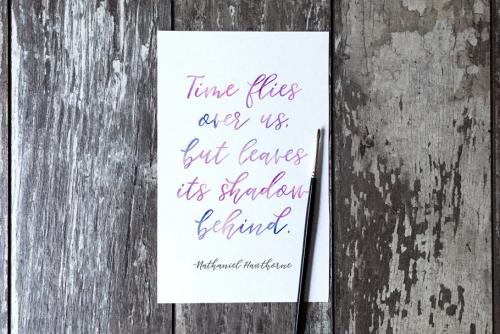 Time flies
over us,
but leaves
its shadow
behind.
-Nathaniel Hawthorne